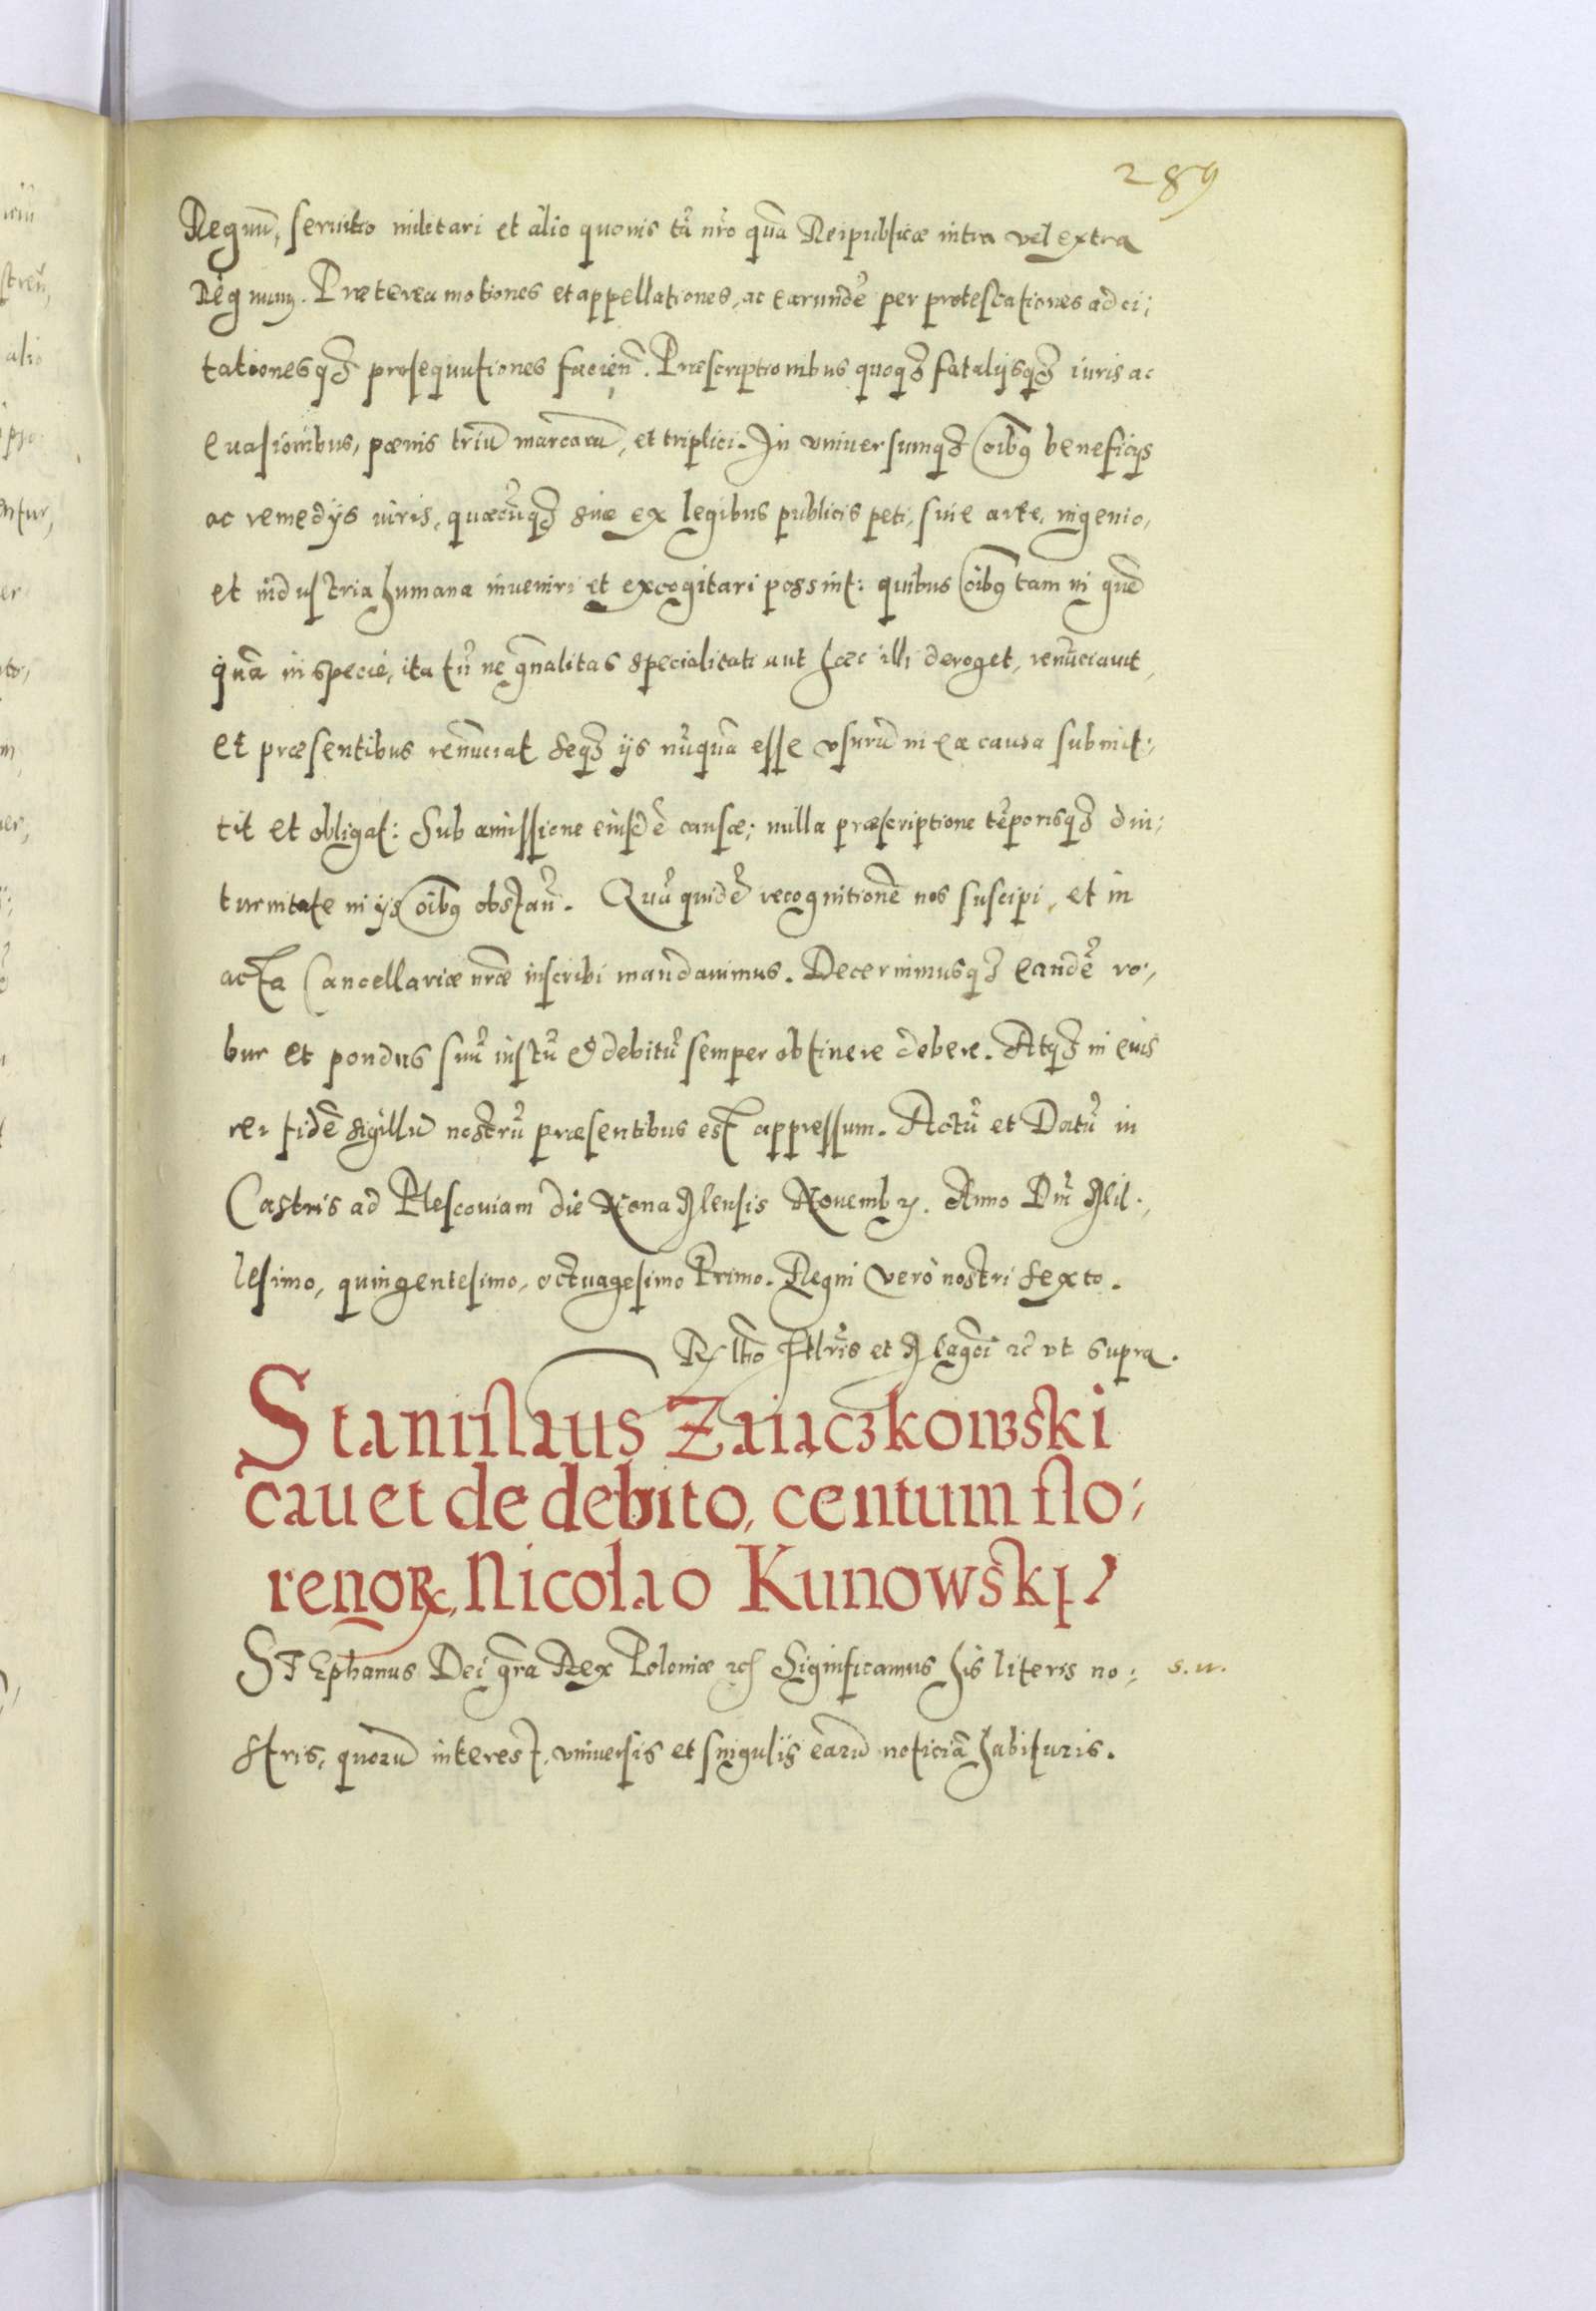 289
Regnũ, seruitio militari et alio quouis tã nr̃o quã Reipublicæ intra vel extra
Regnum. Præterea motiones et appellationes, ac earundẽ per protestationes ad ci:
tationesq3 prosequutiones facieñ. Præscriptionibus quoq3 fatalijsq3 iuris ac
euasionibus, pœnis triũ marcarũ, et triplici. In vniuersumq3 oĩbꝰ beneficijs
ac remedijs iuris, quæcũq3 siue ex legibus publicis peti, siue arte, ingenio,
et industria humana inueniri et excogitari possint: quibus oĩbꝰ tam in gñe
quã in specie, ita tñ ne gñalitas specialitati aut hæc illi deroget, renũciauit,
et præsentibus renũciat seq3 ijs nũquã esse vsurũ in ea causa submit:
tit et obligat: sub amissione eiusdẽ causæ; nulla præscriptione tẽporisq3 diu:
turnitate in ijs oĩbꝰ obstañ. Quã quidẽ recognitionẽ nos suscipi, et in
acta Cancellariæ nr̃æ inscribi mandauimus. Decernimusq3 eandẽ ro:
bur et pondus suũ iustũ & debitũ semper obtinere debere. Atq3 in eius
rei fidẽ sigillũ nostrũ præsentibus est appressum. Actũ et Datũ in
Castris ad Plescouiam die Nona Mensis Nouembꝝ. Anno Dñi Mil:
lesimo, quingentesimo, octuagesimo Primo. Regni vero nostri sexto.
Rꝫ ltĩo Illr̃is et Magcĩ ꝛc̃ vt supra.
Stanislaus Zaiączkowski
cauet de debito, centum flo:
renoꝝ, Nicolao Kunowski
Stephanus Dei gr̃a Rex Poloniæ ꝛc̃ Significamus his literis no: s. n.
stris, quorũ interest, vniuersis et singulis earũ noticiã habituris.